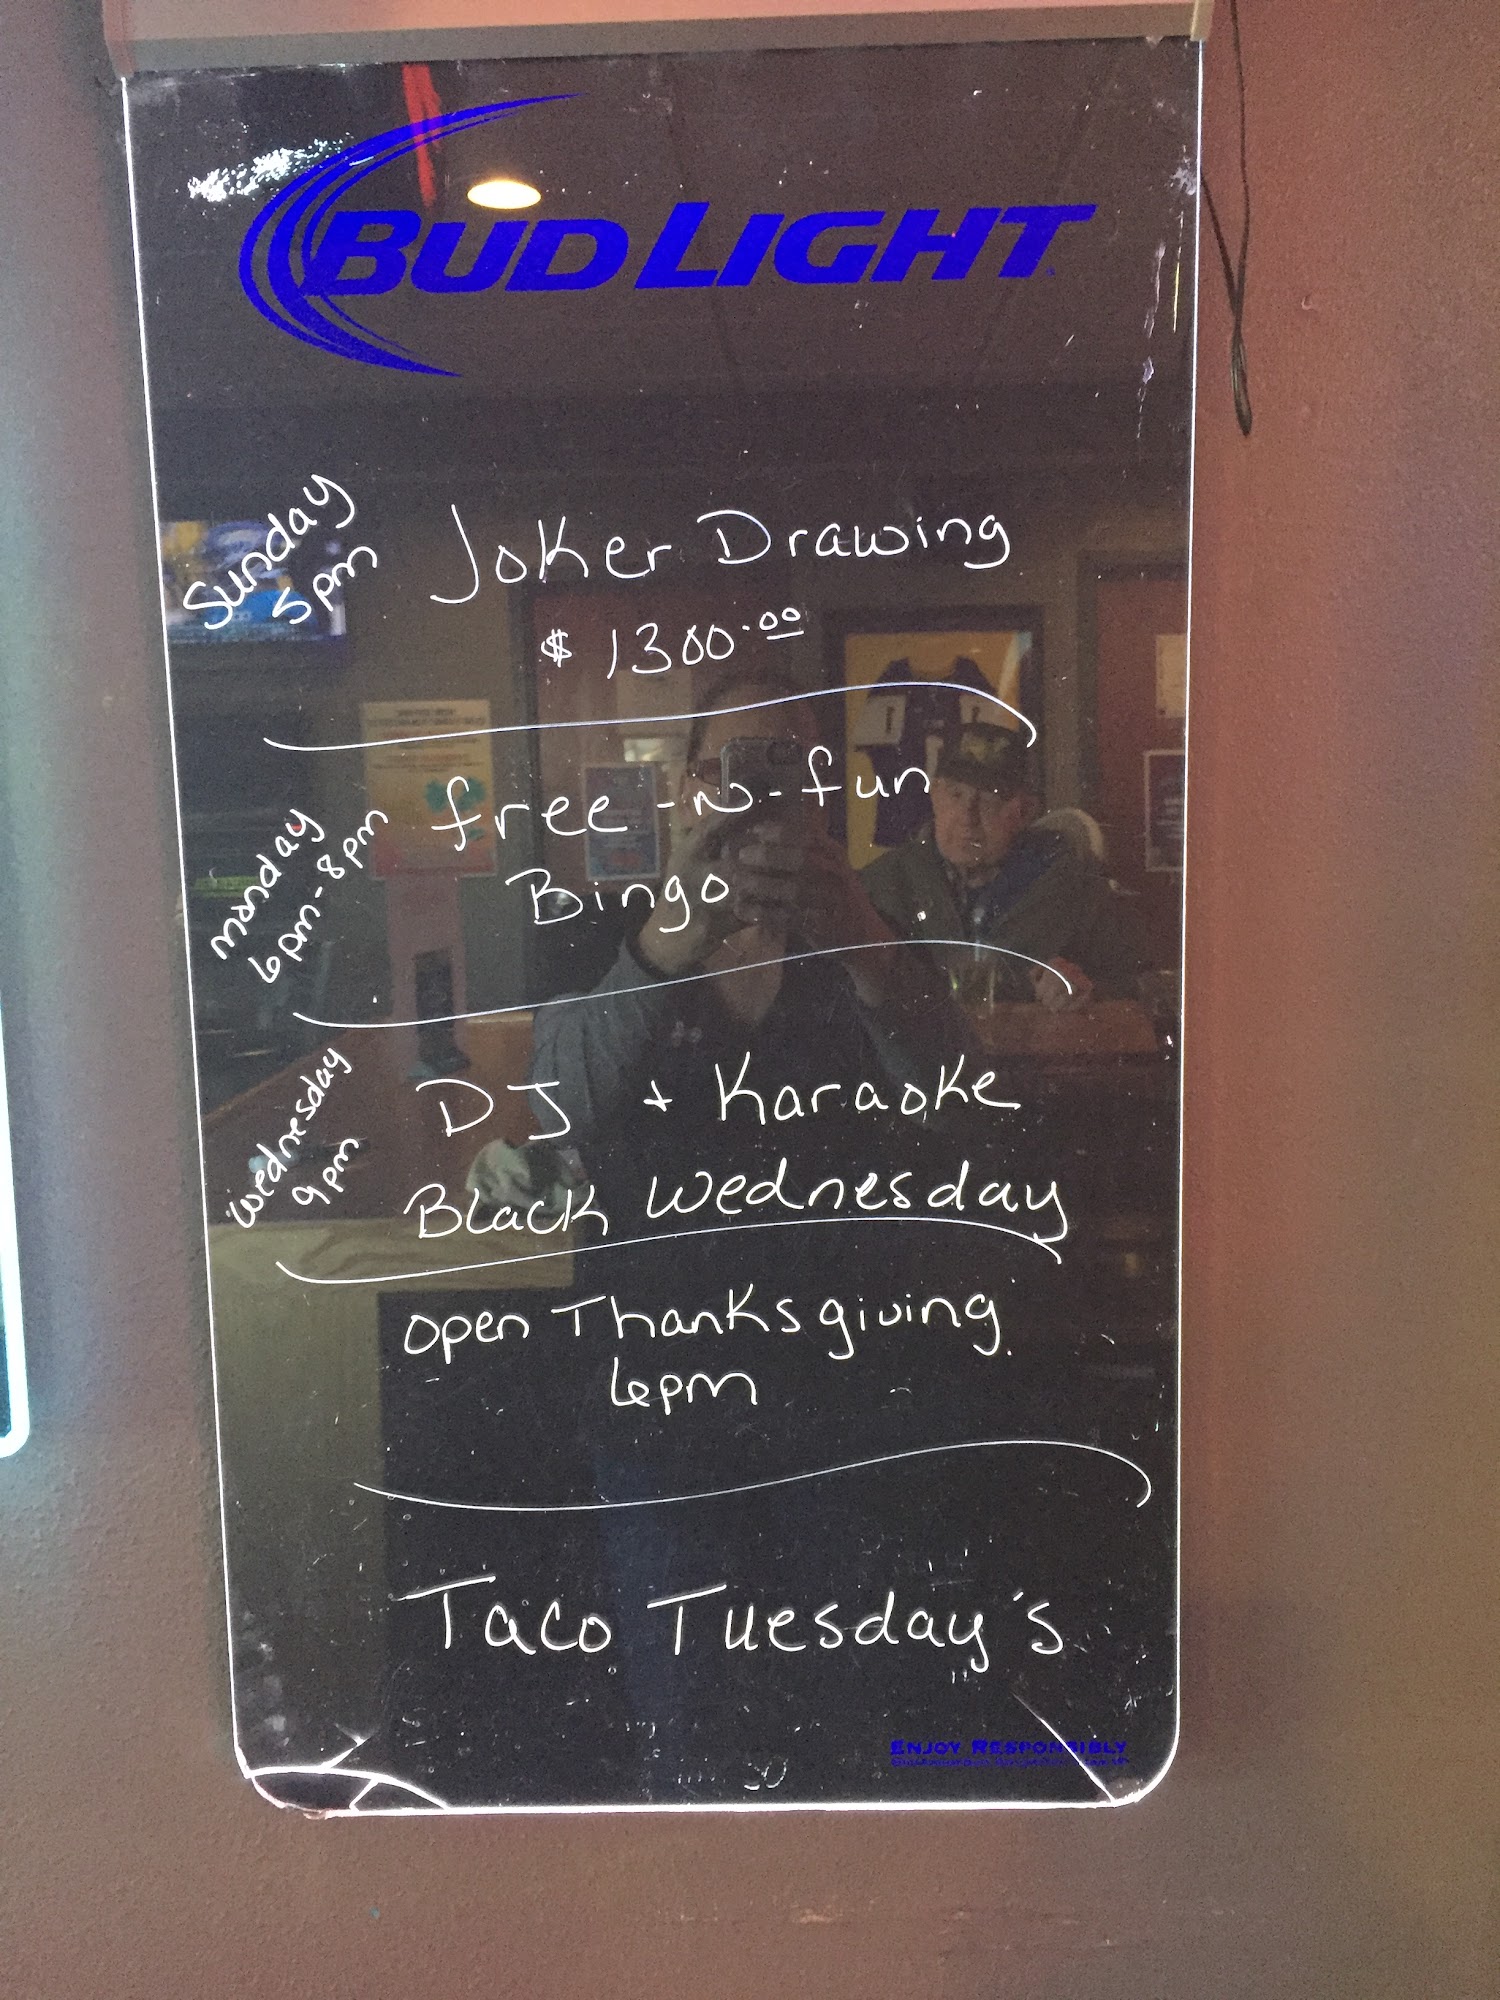 BUD LIGHT
Sunday
5pm
Joker Drawing
$1300.00
monday
6pm-8pm
free-N-fun
Bingo
wednesday
9pm
DJ + Karaoke
Black Wednesday
open Thanksgiving
6pm
Taco Tuesday's
ENJOY RESPONSIBLY